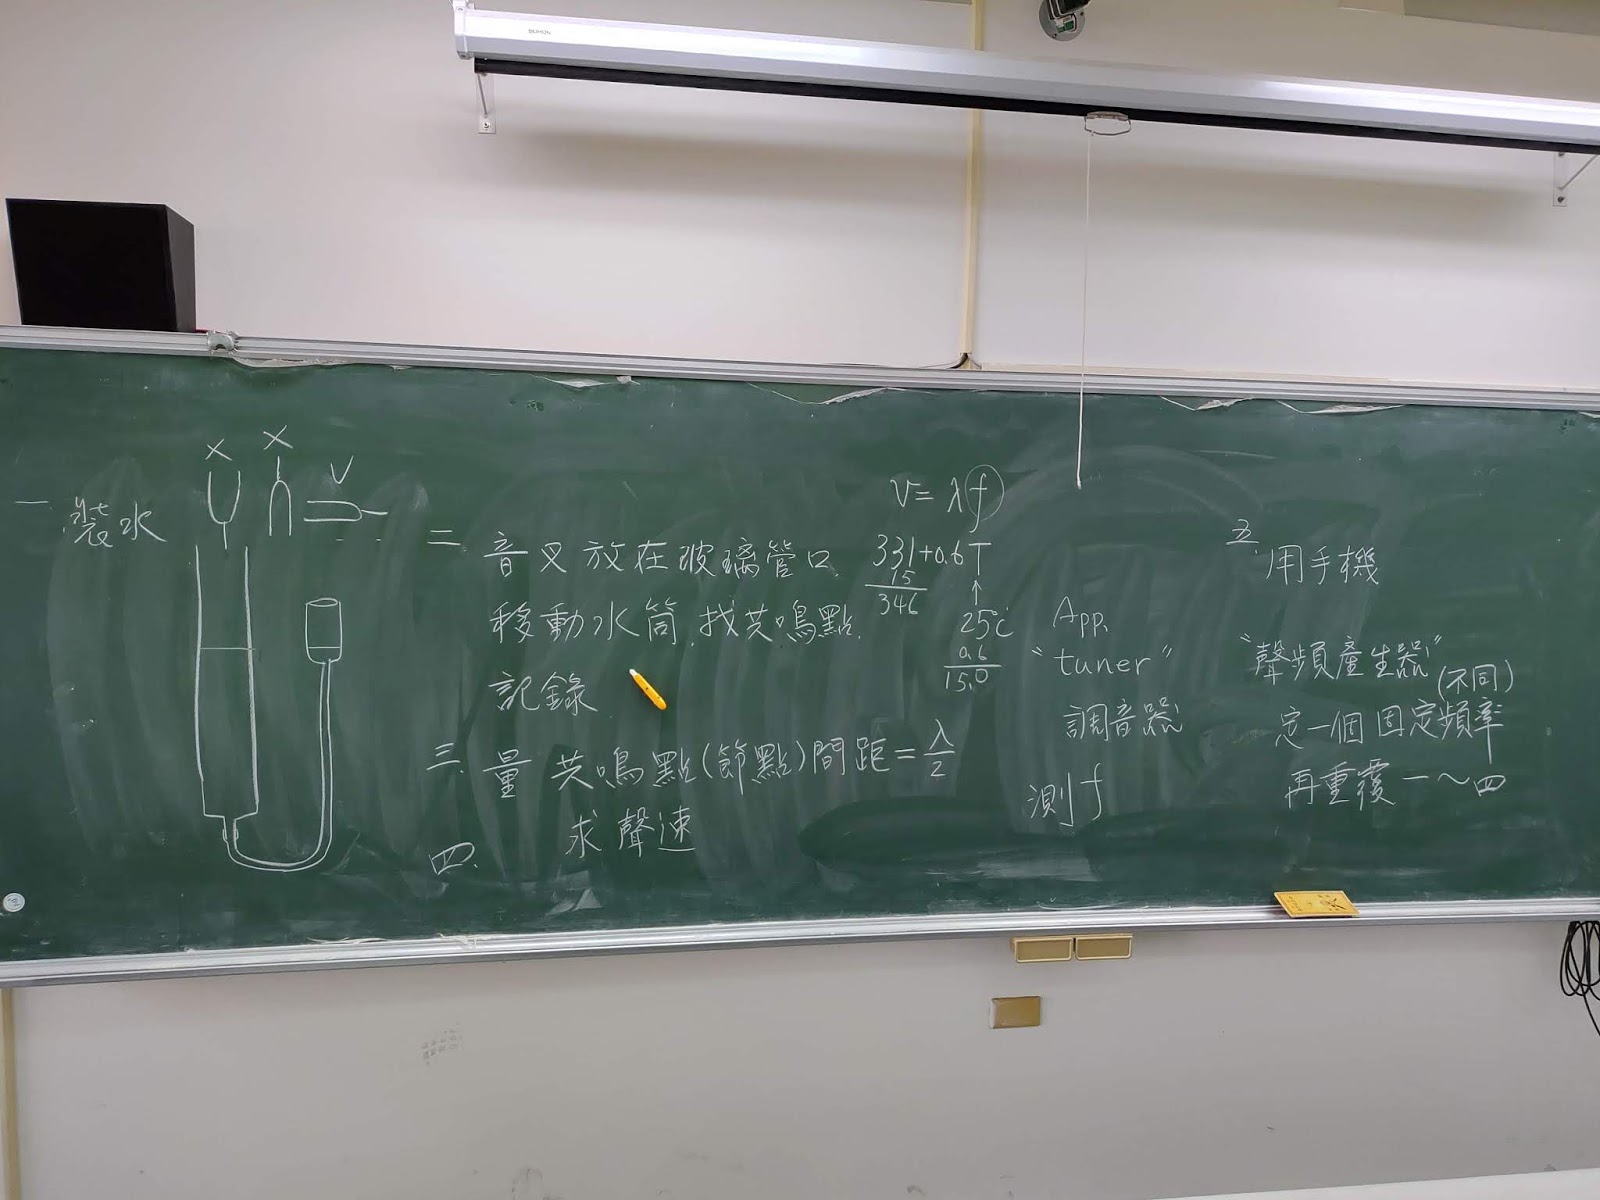 一 裝水
X X V
二 音叉放在玻璃管口
移動水筒.找共鳴點.
記錄
三.量 共鳴點(節點)間距=λ/2
四. 求聲速
V=λf
331+0.6T
15
346
↑
25℃
0.6
15.0
App.
"tuner"
調音器
測f
五.
用手機
"聲頻產生器"
(不同)
定一個固定頻率
再重覆一~四